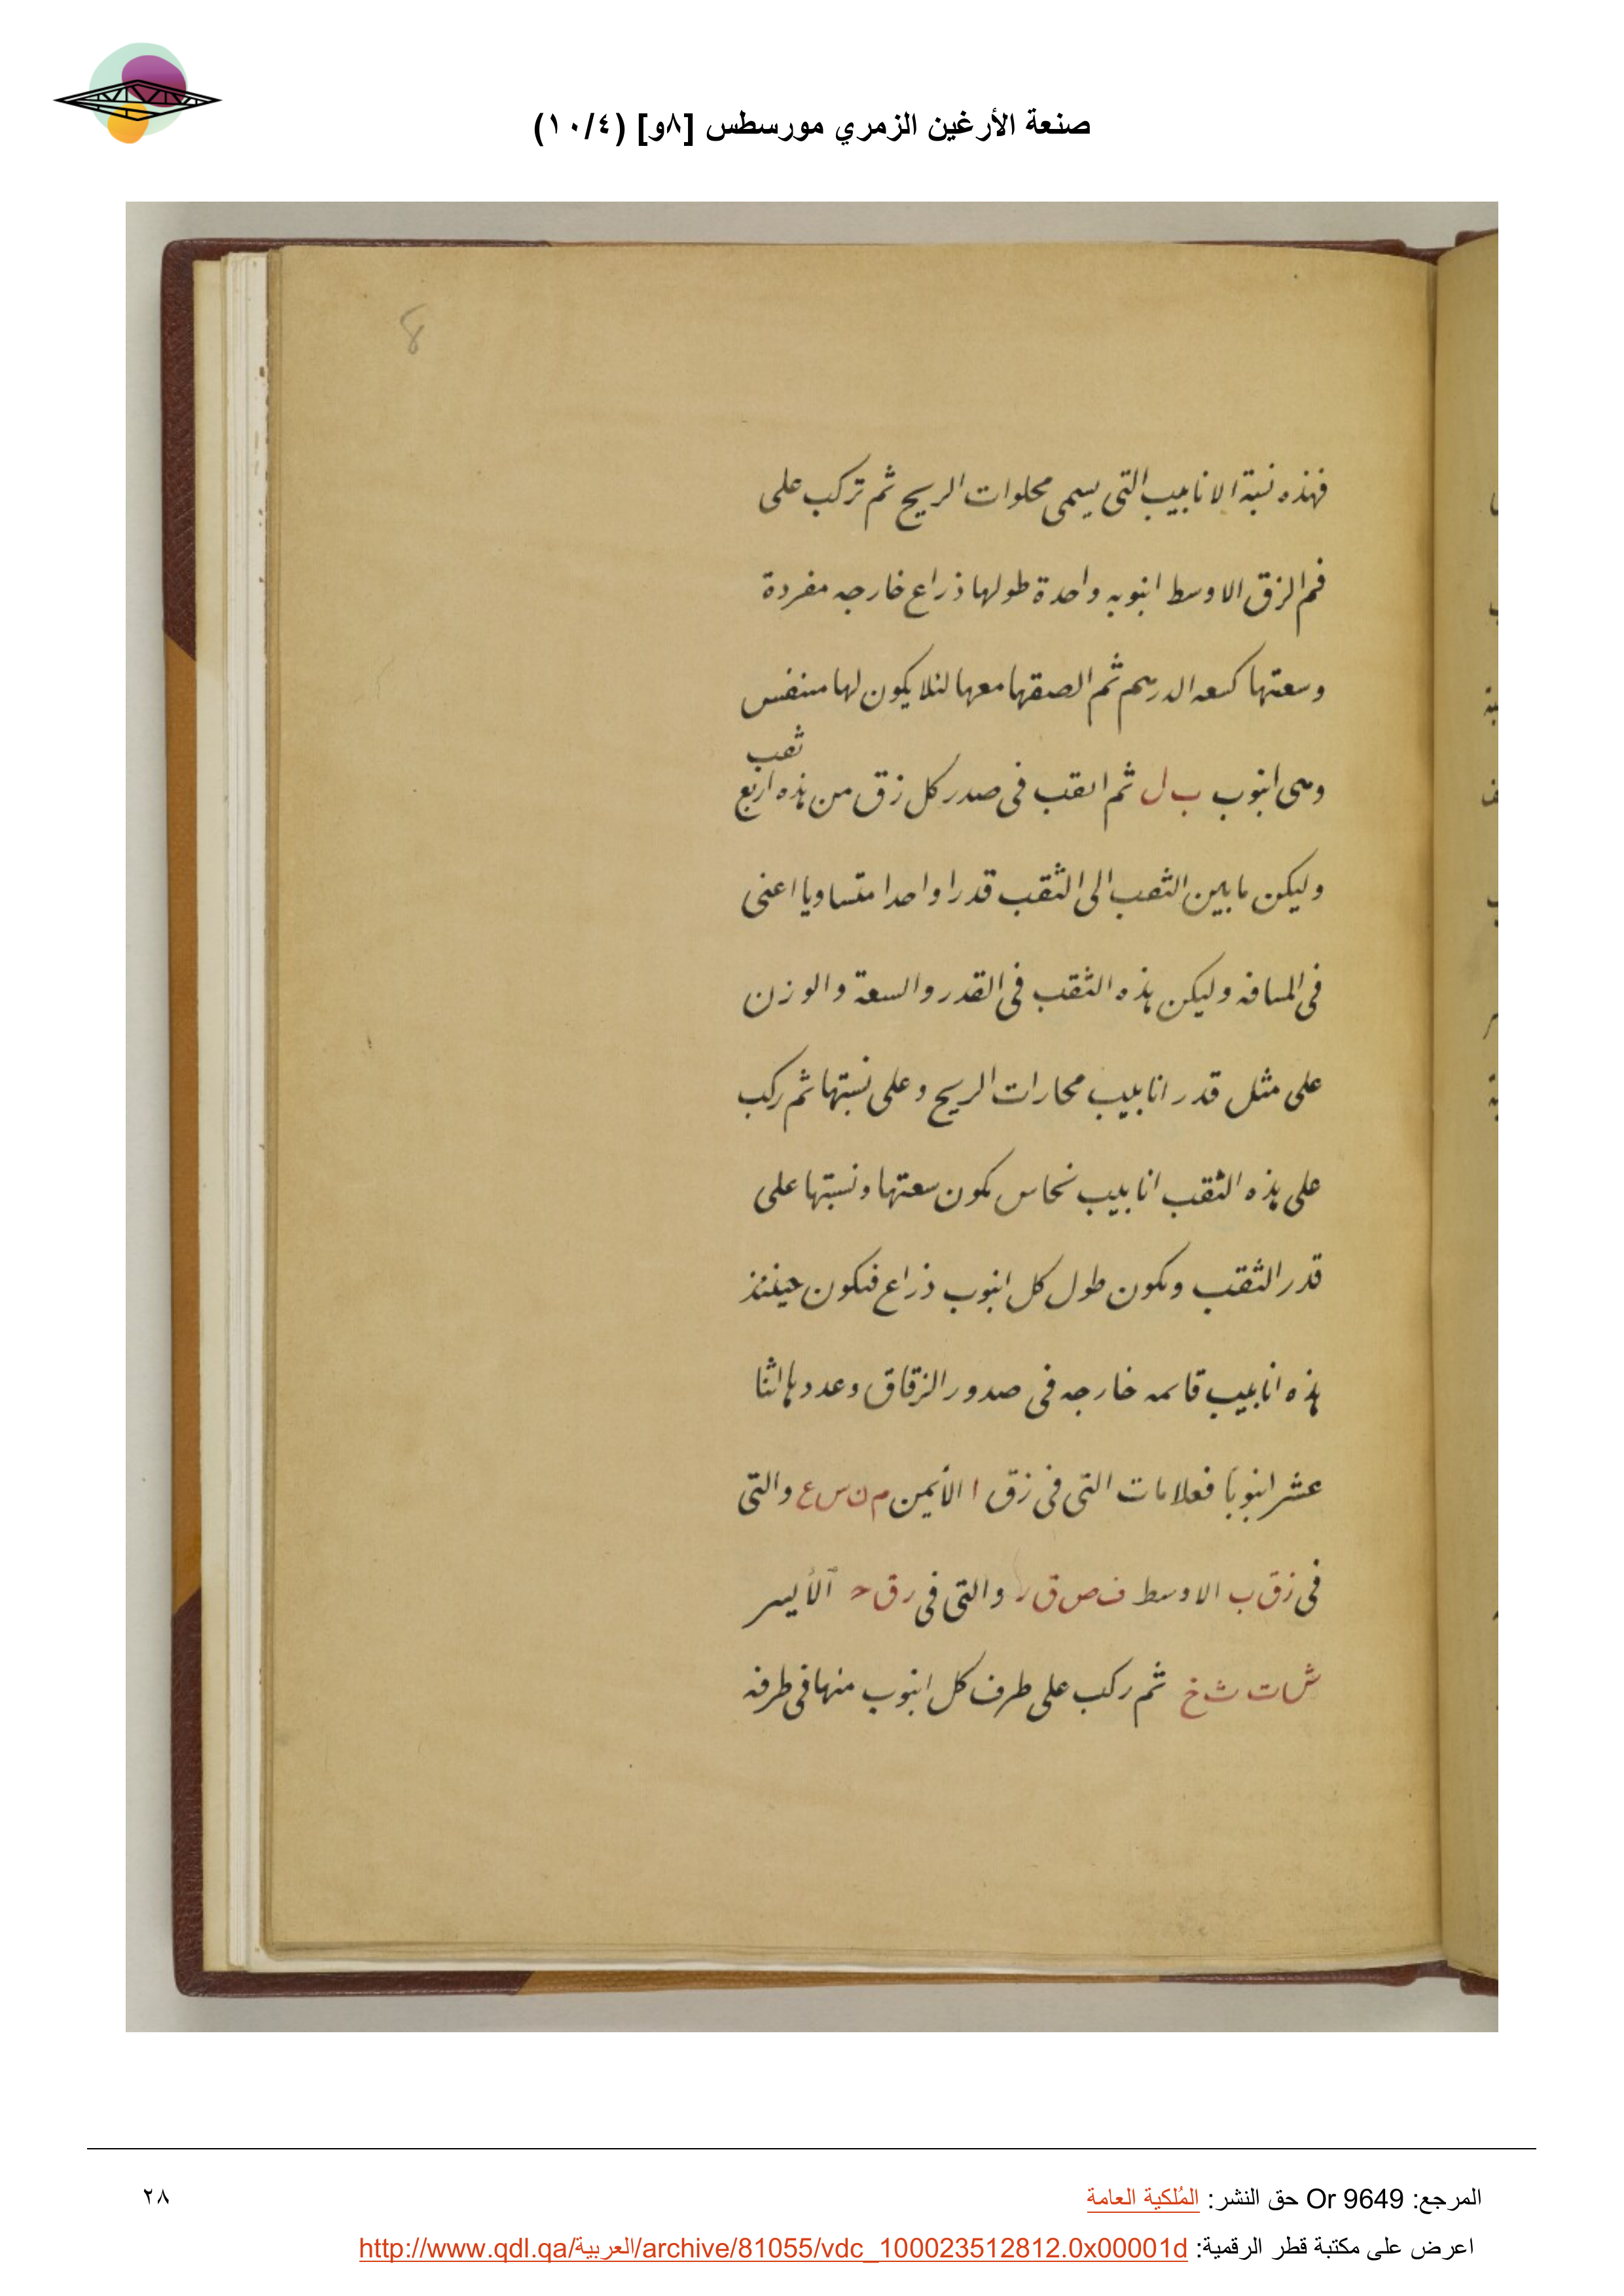 صنعة الأرغين الزمري مورسطس [٨و] (١٠/٤)
8
فهذه نسبة الانابيب التى يسمى محلوات الريح ثم تركب على
فم الزق الاوسط انبوبه واحدة طولها ذراع خارجه مفردة
وسعتها كسعه الدرهم ثم الصقها معها لئلا يكون لها متنفس
ثقب
وهى انبوب ب ل ثم اثقب فى صدر كل زق من هذه اربع
وليكن ما بين الثقب الى الثقب قدرا واحدا متساويا اعنى
فى المسافه وليكن هذه الثقب فى القدر والسعة والوزن
على مثل قدر انابيب محارات الريح وعلى نسبتها ثم ركب
على هذه الثقب انابيب نحاس يكون سعتها ونسبتها على
قدر الثقب ويكون طول كل انبوب ذراع فيكون حينئذ
هذه انابيب قائمه خارجه فى صدور الزقاق وعددها اثنا
عشر انبوبا فعلامات التى فى زق ا الأيمن م ن س ع والتى
فى زق ب الاوسط ف ص ق ر والتى فى زق ح الأيسر
ش ت ث خ ثم ركب على طرف كل انبوب منها فى طرفه
المرجع: Or 9649 حق النشر: المُلكية العامة
٢٨
اعرض على مكتبة قطر الرقمية: http://www.qdl.qa/العربية/archive/81055/vdc_100023512812.0x00001d